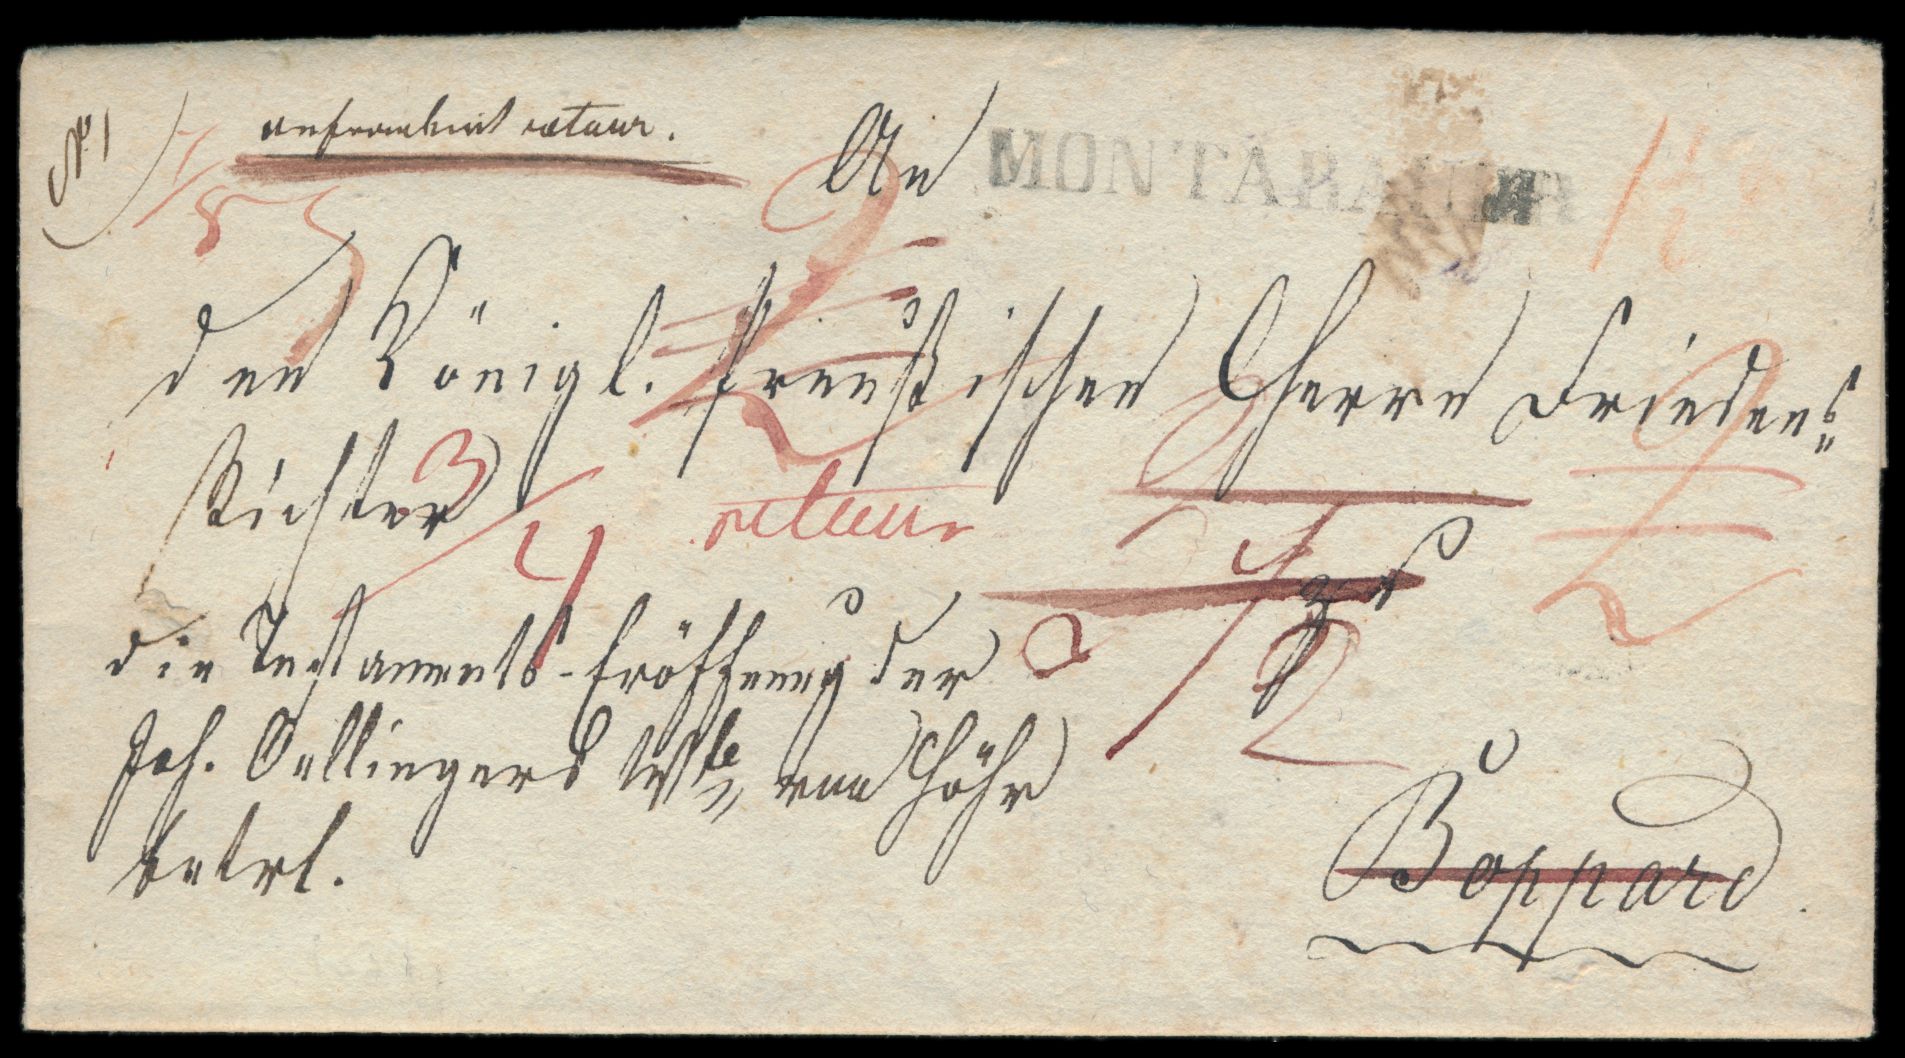 N. 1
unfrankirt retour.
An
MONTABAUR
den Königl. Preußischen Herrn Friedens=
Richter
retour
zu
die Testaments-Eröffnung der
Joh. Oellingers Wtb von Höhr
betrf.
Boppard